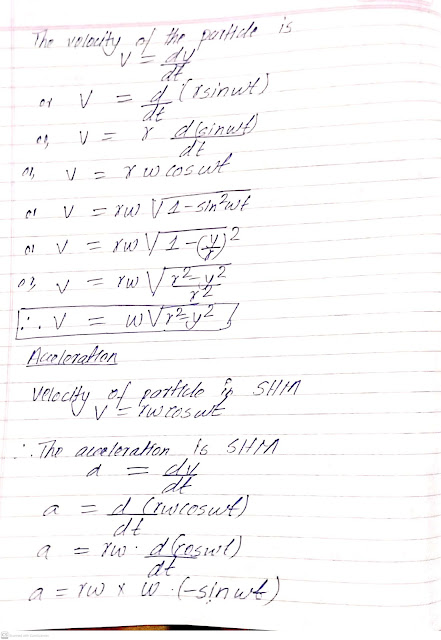 The velocity of the particle is
v = dy/dt
or v = d/dt (rsinwt)
or, v = r d(sinwt)/dt
or, v = rwcoswt
or v = rw √1-sin²wt
or v = rw √1-(y/r)²
or, v = rw √r²-y²/r²
∴ v = w√r²-y²
Acceleration
Velocity of particle in SHM
v = rwcoswt
∴ The acceleration is SHM
a = dv/dt
a = d/dt (rwcoswt)
a = rw · d(coswt)/dt
a = rw x w · (-sinwt)